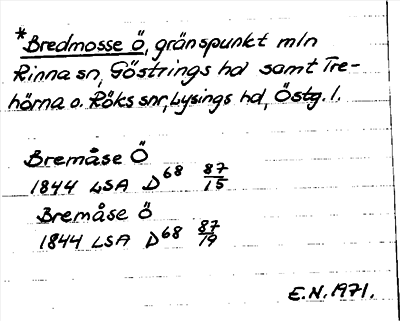 *Bredmosse Ö, gränspunkt mln
Rinna sn, Göstrings hd samt Tre-
hörna o. Röks snr, Lysings hd, Östg. l.
Bremåse Ö
1844 LSA D68 87/15
Bremåse Ö
1844 LSA D68 87/19
E.N. 1971.